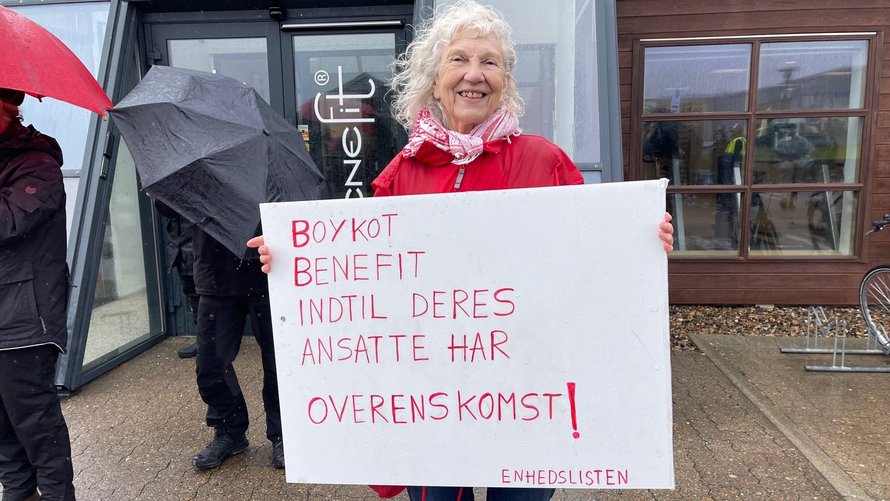 cnefit®
BOYKOT
BENEFIT
INDTIL DERES
ANSATTE HAR
OVERENSKOMST!
ENHEDSLISTEN